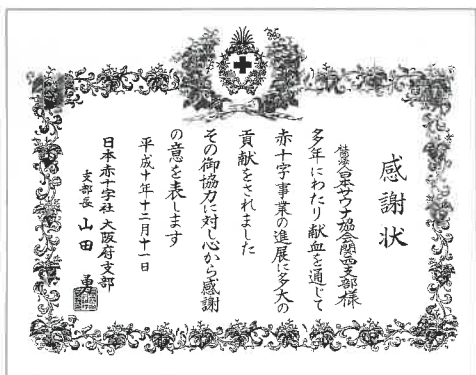 感謝状
社団法人日本サウナ協会関西支部様
多年にわたり献血を通じて
赤十字事業の進展に多大の
貢献をされました
その御協力に対し心から感謝
の意を表します
平成十年十二月十一日
日本赤十字社大阪府支部
支部長 山田 勇